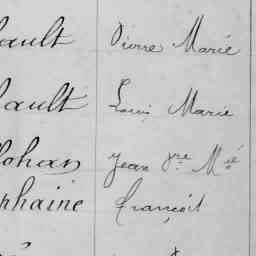 ault Pierre Marie
ault Louis Marie
Johan Jean Pre Mie
phaine François